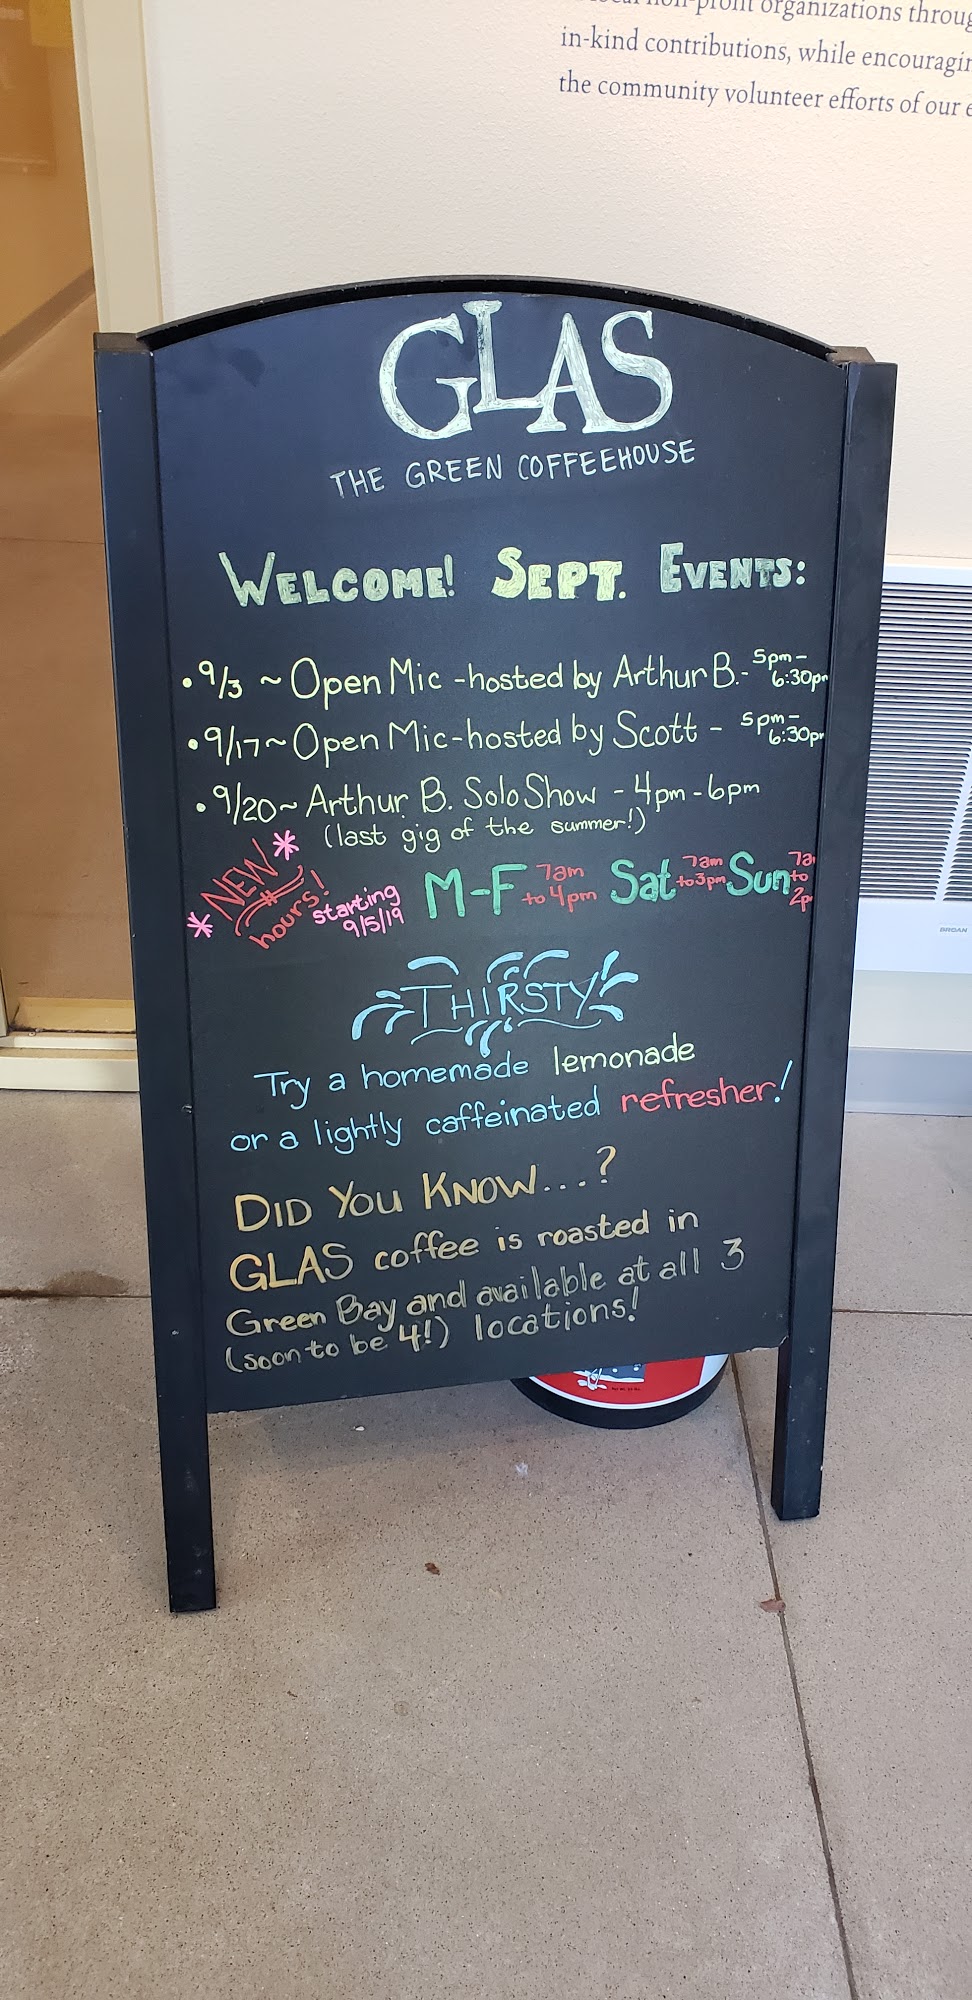 local non-profit organizations throug
in-kind contributions, while encouragin
the community volunteer efforts of our e
GLAS
THE GREEN COFFEEHOUSE
WELCOME! SEPT. EVENTS:
• 9/3 ~ Open Mic - hosted by Arthur B. - 5pm - 6:30pm
• 9/17 ~ Open Mic - hosted by Scott - 5pm - 6:30pm
• 9/20 ~ Arthur B. Solo Show - 4pm - 6pm
(last gig of the summer!)
* NEW * hours! starting 9/5/19
M-F 7am to 4pm Sat 7am to 3pm Sun 7a to 2p
THIRSTY
Try a homemade lemonade
or a lightly caffeinated refresher!
DID YOU KNOW...?
GLAS coffee is roasted in
Green Bay and available at all 3
(soon to be 4!) locations!
BROAN